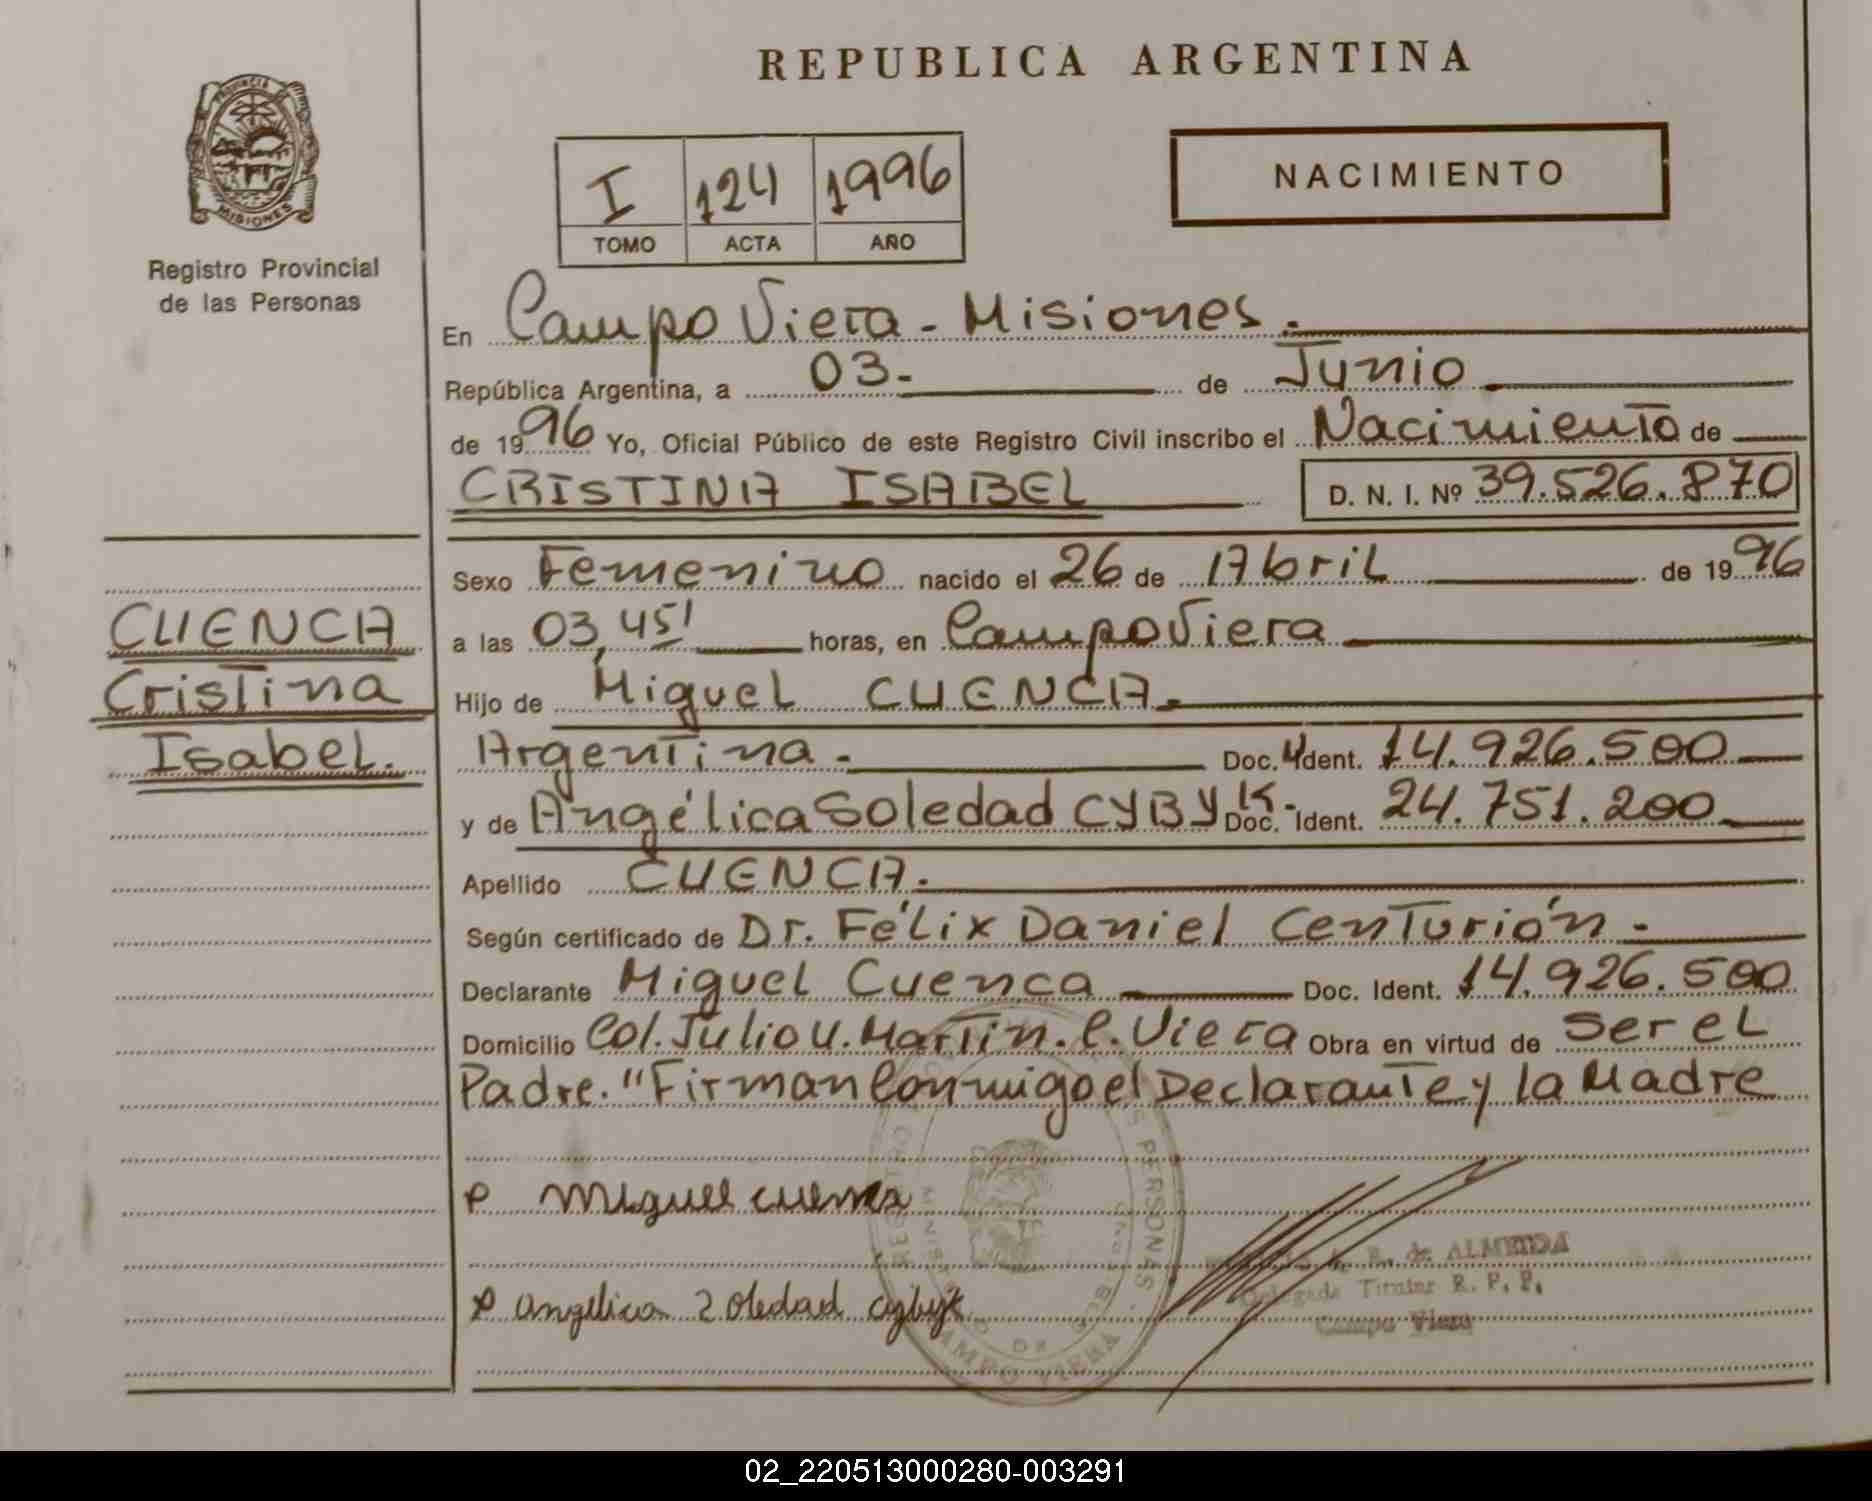 REPUBLICA ARGENTINA
PROVINCIA DE
MISIONES
Registro Provincial
de las Personas
I 124 1996
TOMO ACTA AÑO
NACIMIENTO
En Campo Viera - Misiones.
República Argentina, a 03.- de Junio
de 1996 Yo, Oficial Público de este Registro Civil inscribo el Nacimiento de
CRISTINA ISABEL D. N. I. Nº 39.526.870
Sexo Femenino nacido el 26 de Abril de 1996
a las 03,45' horas, en Campo Viera
Hijo de Miguel CUENCA.
Argentina.- Doc. Ident. 14.926.500
y de Angélica Soledad CYBYK.- Doc. Ident. 24.751.200
Apellido CUENCA.
Según certificado de Dr. Félix Daniel Centurión.-
Declarante Miguel Cuenca Doc. Ident. 14.926.500
Domicilio Col. Julio U. Martin. C. Viera Obra en virtud de ser el
Padre. "Firman Conmigo el Declarante y la Madre
CUENCA
Cristina
Isabel.
Miguel cuenca
angelica Soledad cybyk
de ALMEIDA
Delegada Titular R. P. P.
Campo Viera
REGISTRO PERSONAS
CAMPO VIERA
02_220513000280-003291